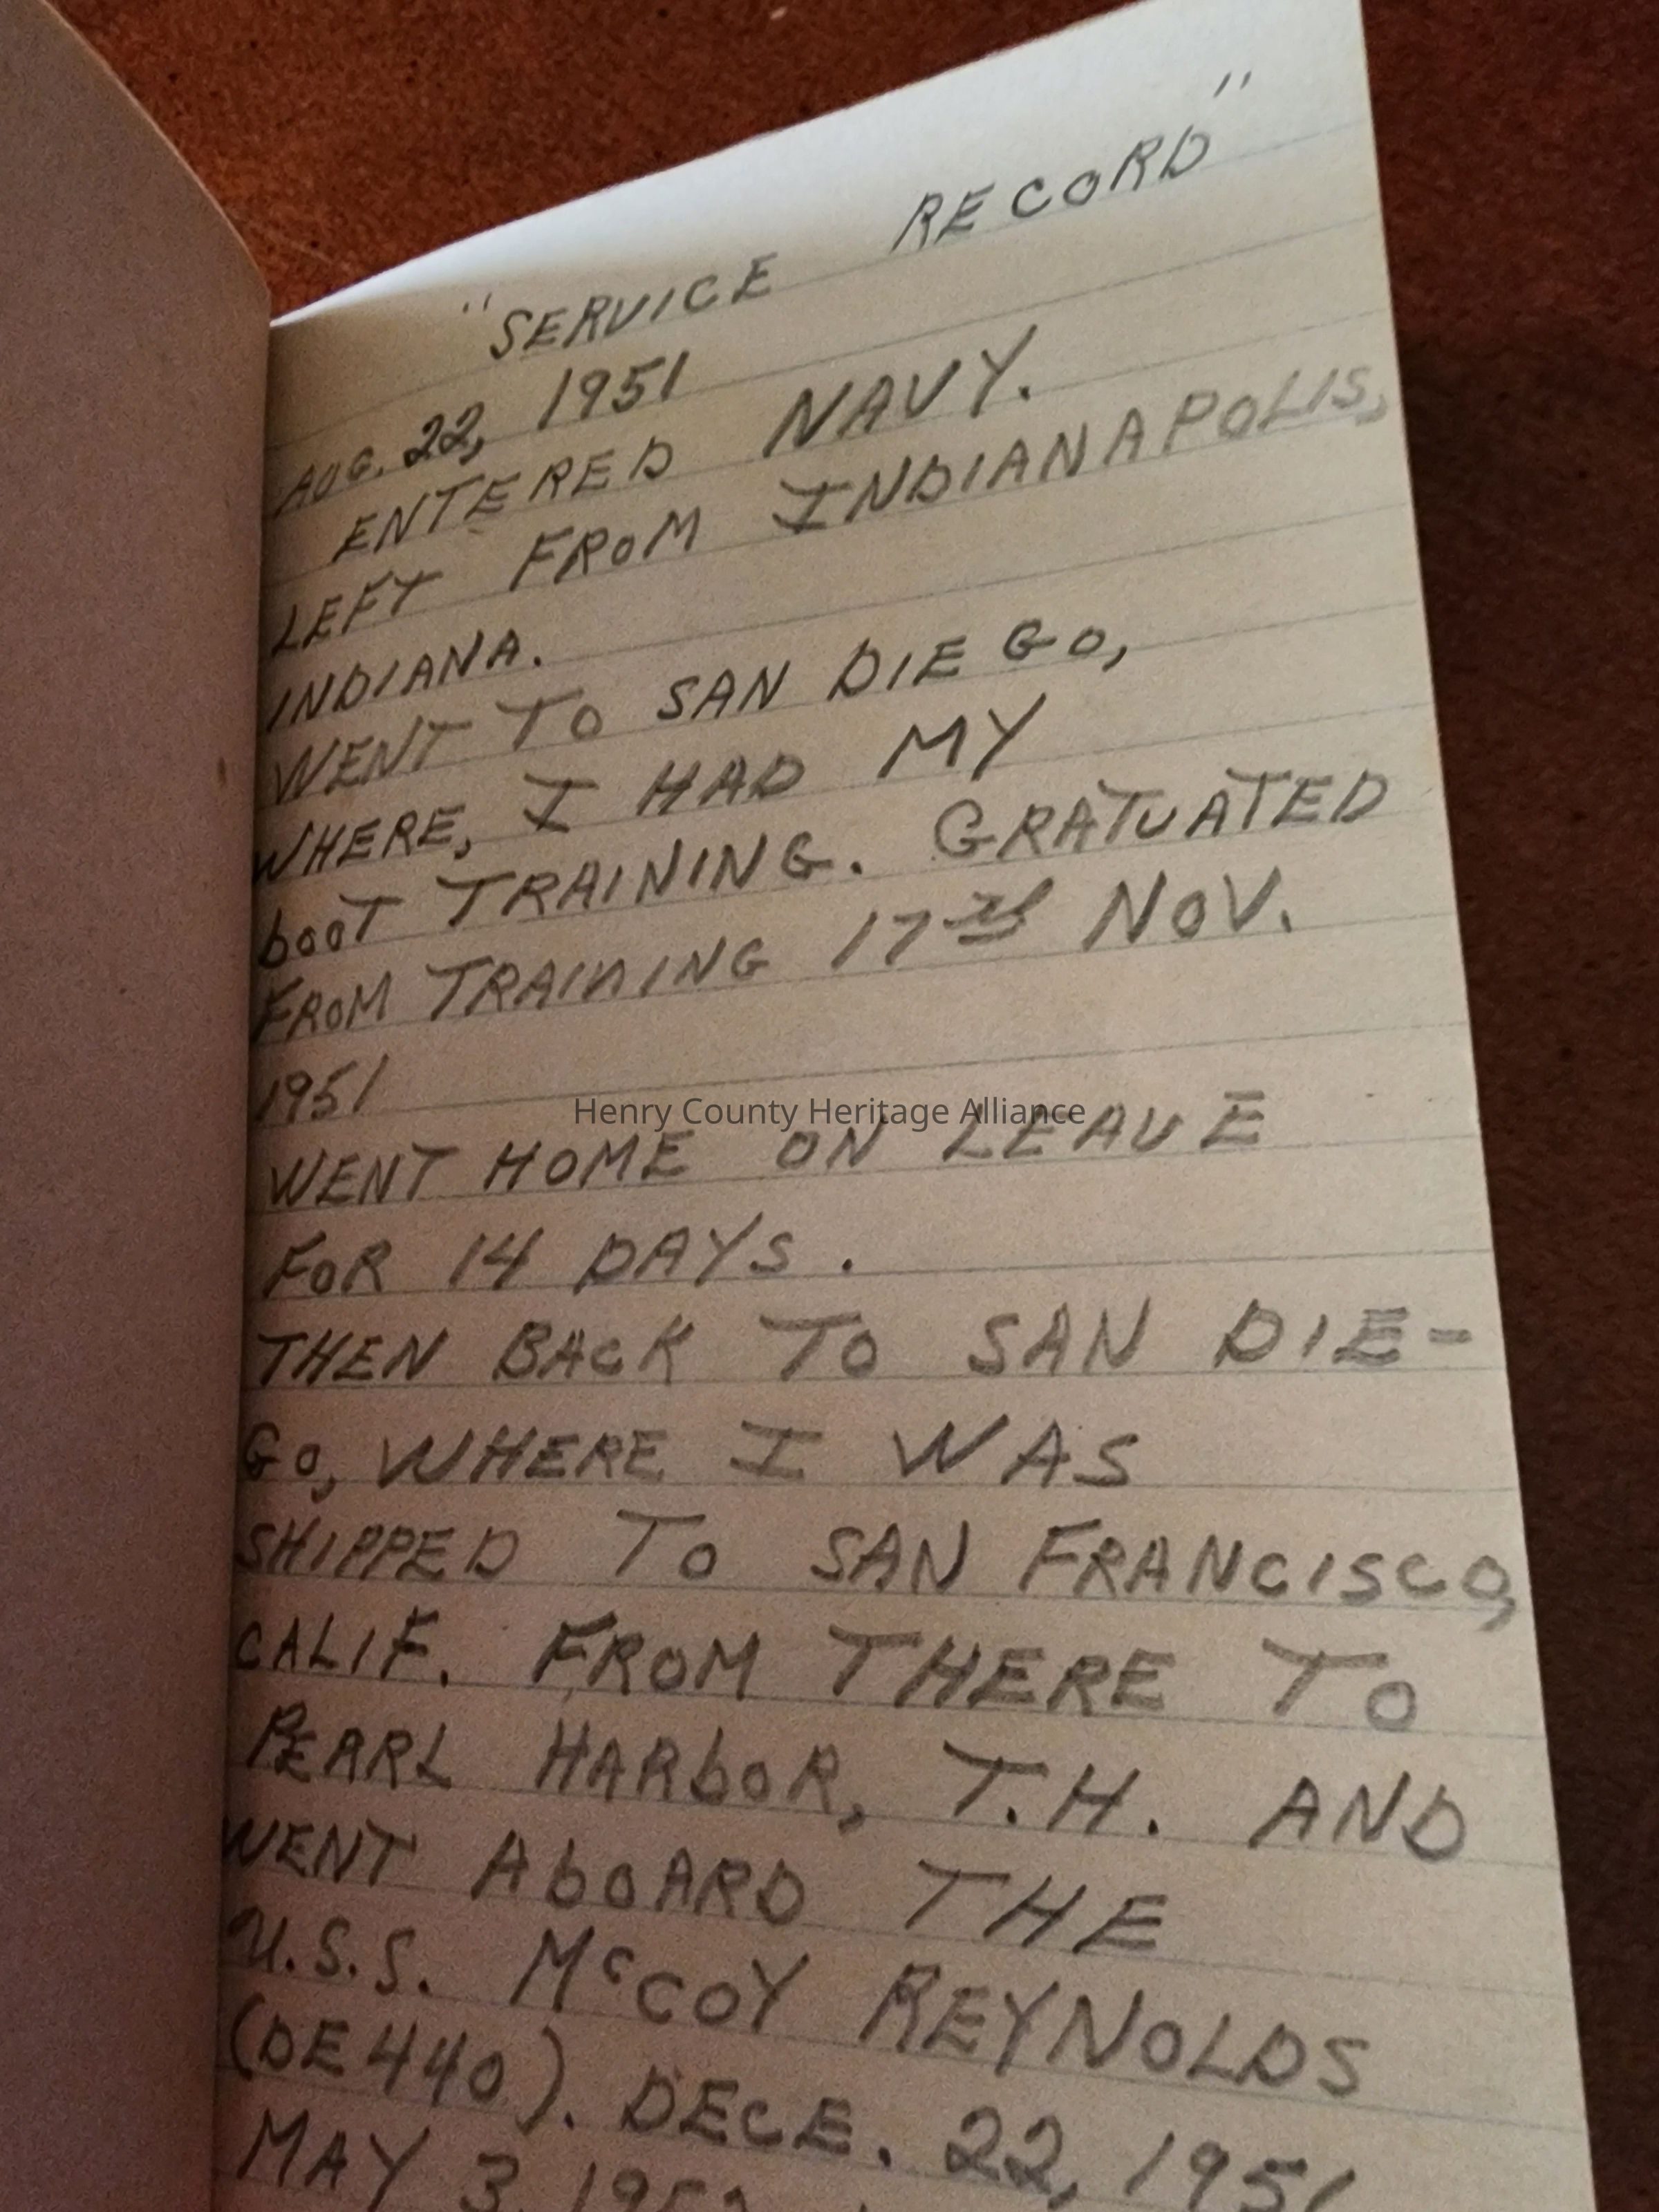 "SERVICE RECORD"
AUG. 22, 1951
ENTERED NAVY.
LEFT FROM INDIANAPOLIS,
INDIANA.
WENT TO SAN DIEGO,
WHERE, I HAD MY
booT TRAINING. GRATUATED
FROM TRAINING 17th NOV.
1951
Henry County Heritage Alliance
WENT HOME ON LEAVE
FOR 14 DAYS.
THEN BACK TO SAN DIE-
GO, WHERE I WAS
SHIPPED TO SAN FRANCISCO,
CALIF. FROM THERE TO
PEARL HARboR, T.H. AND
WENT AboARD THE
U.S.S. McCOY REYNOLDS
(DE440). DECE. 22, 1951
MAY 3,